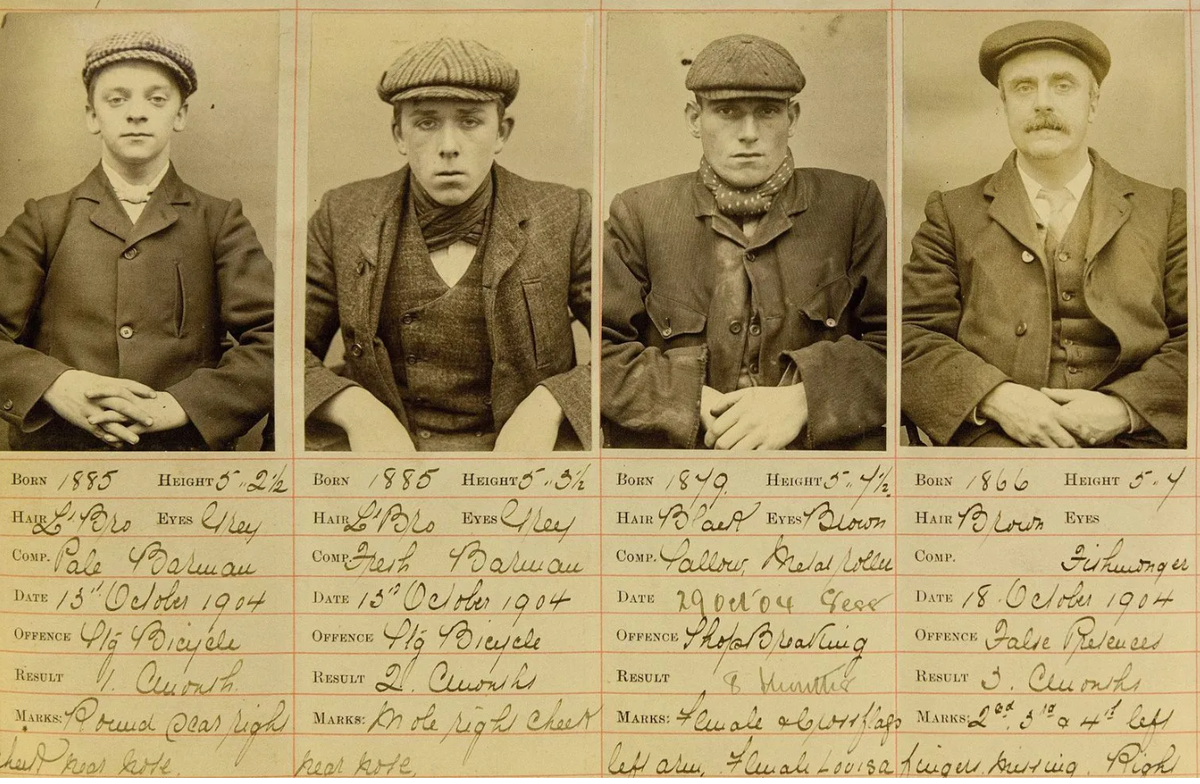 BORN 1885 HEIGHT 5.. 2½
HAIR Lt Bro EYES Grey
COMP. Pale Barman
DATE 13th October 1904
OFFENCE Stg Bicycle
RESULT 1. Cmonth.
MARKS: Round scar right
cheek near nose.
BORN 1885 HEIGHT 5.. 3½
HAIR Lt Bro EYES Grey
COMP. Fresh Barman
DATE 13th October 1904
OFFENCE Stg Bicycle
RESULT 2. Cmonths
MARKS: Mole right cheek
near nose.
BORN 1879. HEIGHT 5.. 4½.
HAIR Black EYES Brown
COMP. Sallow, Metal roller
DATE 29 Oct '04 Sess
OFFENCE ShopBreaking
RESULT 8 Months
MARKS: Female & Cross flags
left arm, Female Louisa
BORN 1866 HEIGHT 5.. 4
HAIR Brown EYES
COMP. Fishmonger
DATE 18. October 1904
OFFENCE False Pretences
RESULT 3. Cmonths
MARKS: 2nd, 3rd & 4th left
fingers, missing. Right